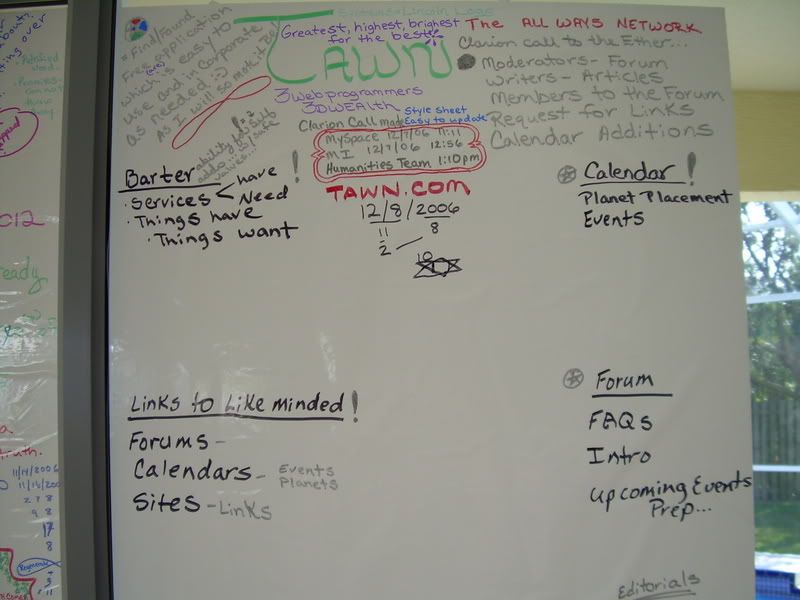 = Find/Found
Free application
which is easy to
use and incorporate
as needed :)
As I will so mote it be!
Systems = Lincoln Logs
Greatest, highest, brighest
for the best!
TAWN
3 Web programmers
3D WEAlth
Style Sheet
Easy to update
Clarion Call made
MySpace 12/7/06 11:11
MI 12/7/06 12:56
Humanities Team 1:10pm
TAWN.COM
12/8/2006
11 8
2
10
The ALL WAYS NETWORK
Clarion call to the Ether...
Moderators - Forum
Writers - Articles
Members to the Forum
Request for Links
Calendar Additions
Barter !
· Services < have
Need
· Things have
· Things want
Calendar !
Planet Placement
Events
Links to Like minded !
Forums -
Calendars - Events
Planets
Sites - Links
Forum
FAQs
Intro
Upcoming Events
Prep...
Editorials
012
eady
truth.
11/14/2006
2 7 8
9 8
17
8